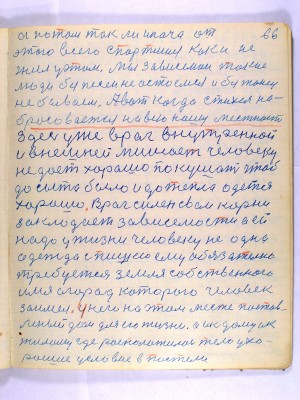 66
а потом так ли иначе от
этого всего спортился как и не
жил у том. Мы зависемои такие
люди бу песен не остаемся и бу тому
не бываем. А вот когда стихея на-
бросовается на всю нашу местност
Здес уже враг внутренной
и внешней мишает человеку
не дает хорашо покушат штоб
до сыта било и до тепла одется
хорашо. Враг силен сам корни
закладает зависемости а ей
надо у жизни человеку не одна
одежда с пищую ему обязателно
требуется земля собственного
имя спорад которого человек
занял. У него на этом месте постав-
леный дом для его жизни. а и к дому и к
жилищу где расположилас тело ухо-
рошие условие в постели